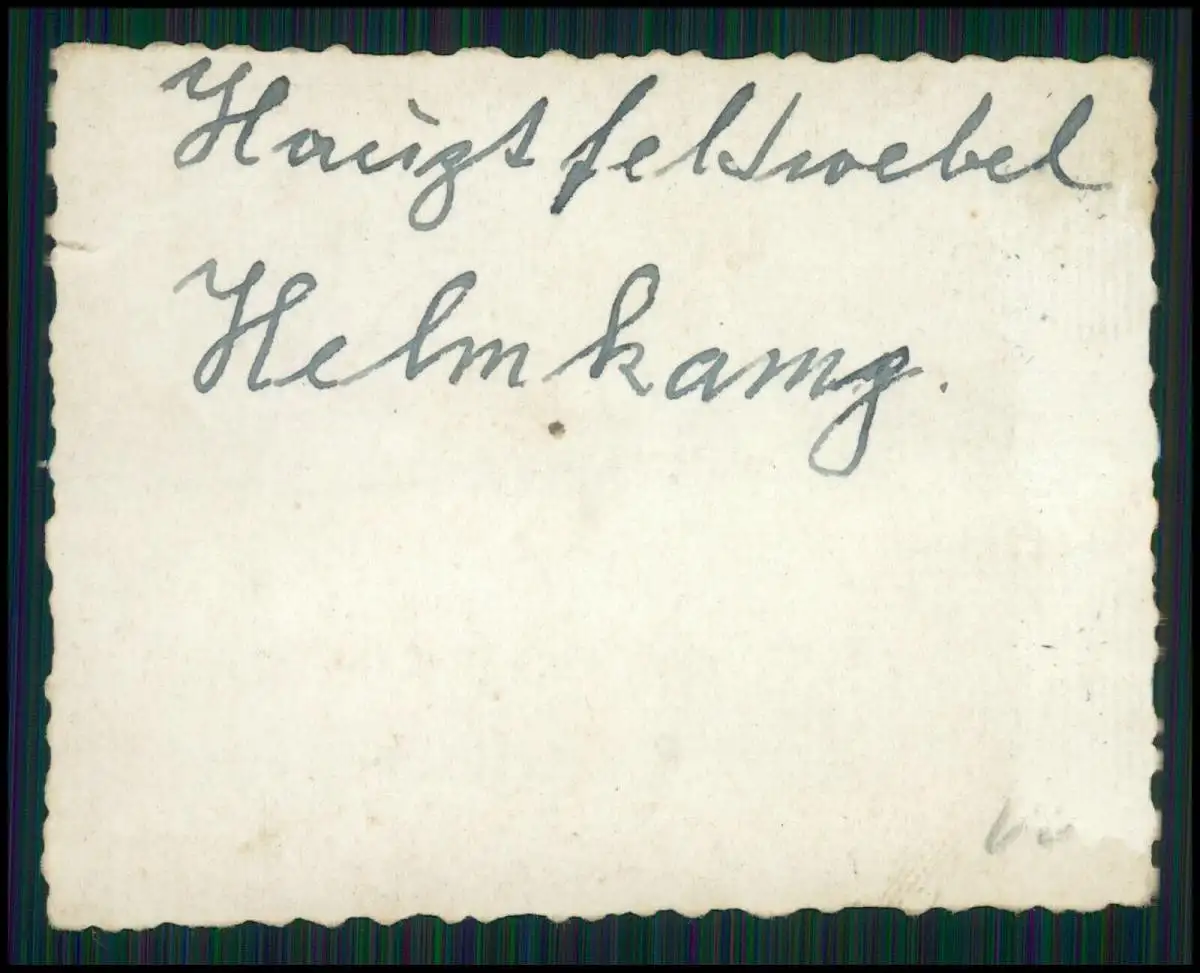 Hauptfeldwebel
Helmkamp.